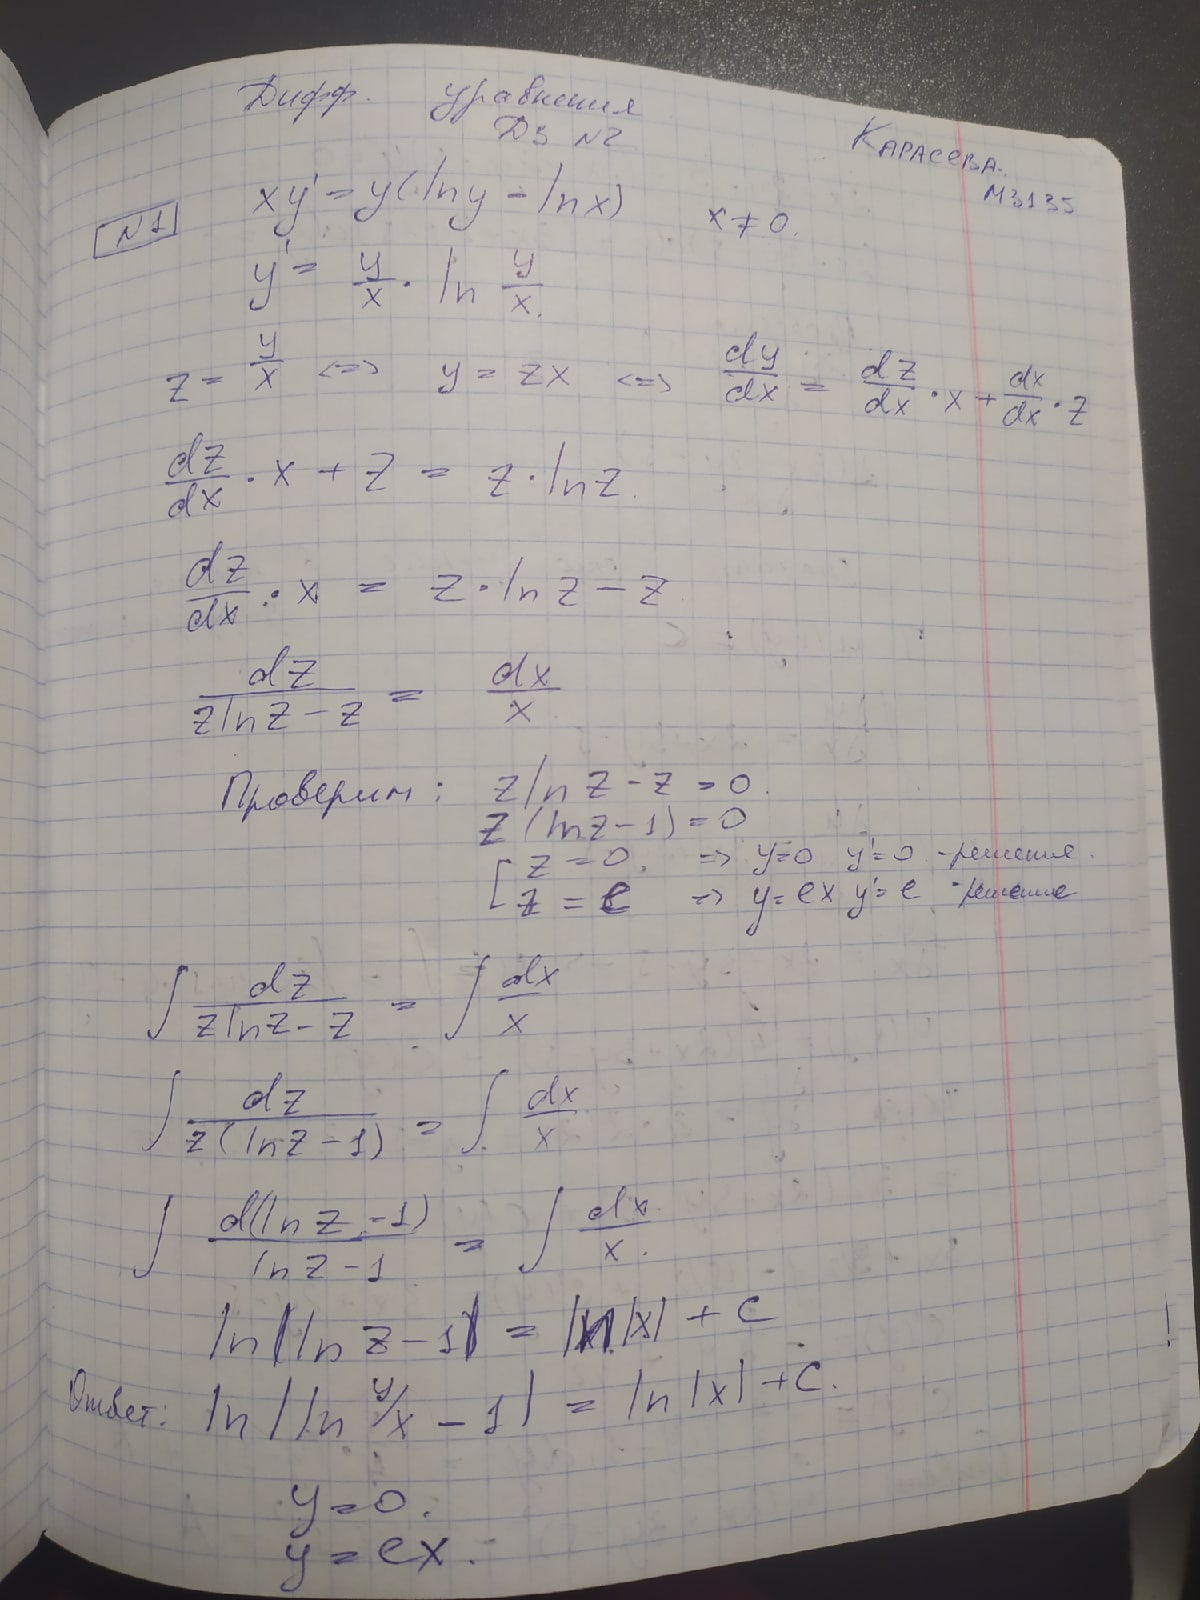 Дифф. уравнения
ДЗ №2
Карасева.
М3135
№1
xy' = y(lny - lnx)   x ≠ 0.
y' = y/x · ln y/x.
z = y/x <=> y = zx <=> dy/dx = dz/dx · x + dx/dx · z
dz/dx · x + z = z · lnz.
dz/dx · x = z · lnz - z
dz/(zlnz - z) = dx/x
Проверим: zlnz - z = 0.
z(lnz - 1) = 0
[ z = 0. => y=0 y'=0 - решения.
z = e => y = ex y' = e - решение
∫ dz/(zlnz - z) = ∫ dx/x
∫ dz/(z(lnz - 1)) = ∫ dx/x
∫ d(lnz - 1)/(lnz - 1) = ∫ dx/x.
ln|lnz - 1| = ln|x| + C
Ответ: ln|ln y/x - 1| = ln|x| + C.
y = 0.
y = ex.
!